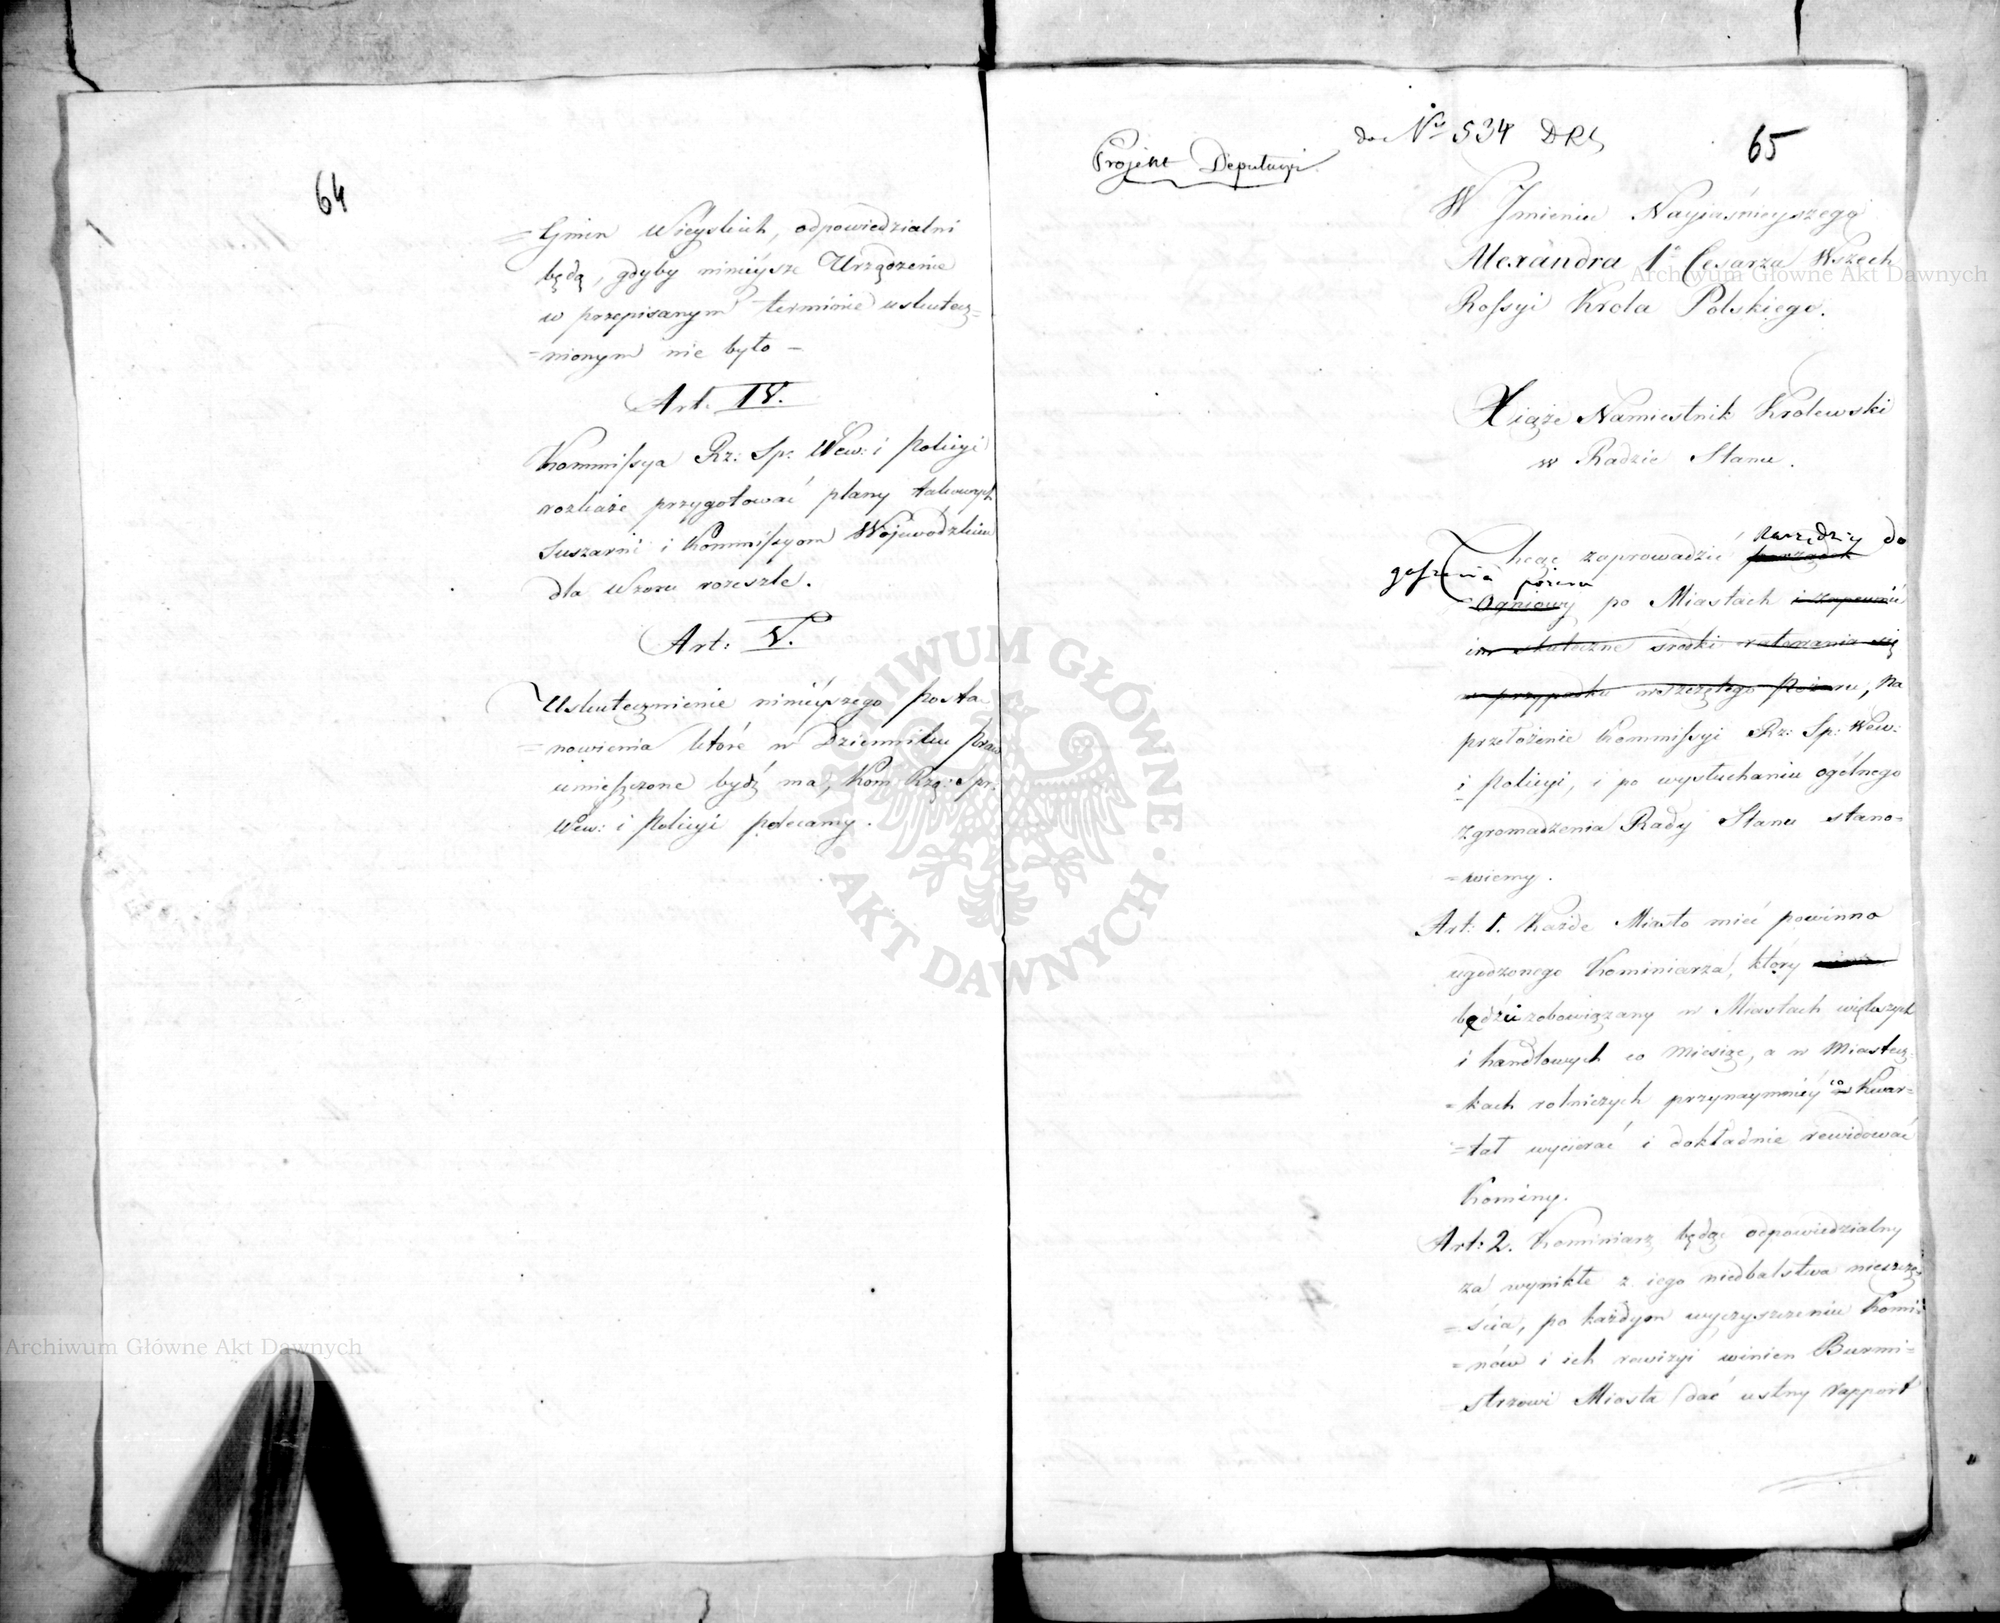 64
=Gmin Wieyskich, odpowiedzialni
będą, gdyby ninieysze Urządzenie
w przepisanym terminie uskutecz=
=nionym nie było —
Art: IV.
Kommissya Rz: Sp: Wew: i Policyi
rozkaże przygotować plany takowych
Suszarni i Kommissyom Wojewodzkim
dla wzoru rozeszle.
Art: V.
Uskutecznienie ninieyszego posta
=nowienia które w Dzienniku Praw
umieszczone bydź ma, Kom Rzą: Spr:
Wew: i Policyi polecamy.
do No 534 DRS
65
Projekt Deputacyi
W Jmieniu Nayiaśnieyszego
Alexandra 1o Cesarza Wszech
Rossyi Krola Polskiego.
Xiąże Namiestnik Krolewski
w Radzie Stanu.
Narzędzia do
Chcąc zaprowadzić porządek
gaszenia pożaru
Ogniowy po Miastach i zapewnić
im skuteczne środki ratowania się
w przypadku wszczętego Pożaru, na
przełożenie Kommissyi Rz: Sp: Wew:
i Policyi, i po wysłuchaniu ogólnego
Zgromadzenia Rady Stanu stano=
=wiemy.
Art: 1. Każde Miasto mieć powinno
ugodzonego Kominiarza, który
będzie zobowiązany w Miastach większych
i handlowych co Miesiąc, a w Miastecz=
=kach rolniczych przynaymniéy co Kwar=
=tał wycierać i dokładnie rewidować
Kominy.
Art: 2. Kominiarz będąc odpowiedzialny
za wynikłe z iego niedbalstwa nieszczę=
=ścia, po każdym wyczyszczeniu Komi=
=nów i ich rewizyi winien Burmi=
=strzowi Miasta dać ustny rapport
ARCHIWUM GŁÓWNE AKT DAWNYCH
Archiwum Główne Akt Dawnych
Archiwum Główne Akt Dawnych